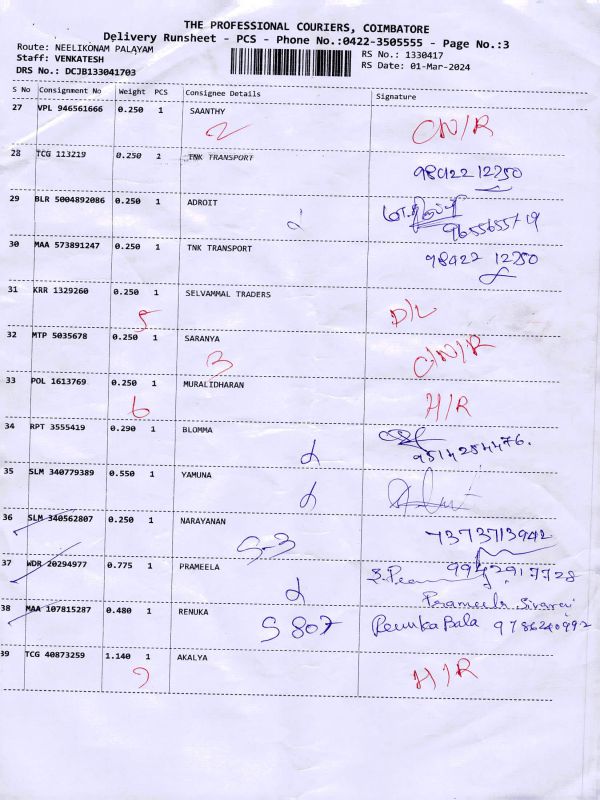 THE PROFESSIONAL COURIERS, COIMBATORE
Delivery Runsheet - PCS - Phone No.:0422-3505555 - Page No.:3
Route: NEELIKONAM PALAYAM
RS No.: 1330417
Staff: VENKATESH
RS Date: 01-Mar-2024
DRS No.: DCJB133041703
S No Consignment No Weight PCS Consignee Details Signature
27 VPL 946561666 0.250 1 SAANTHY
2 CN/R
28 TCG 113219 0.250 1 TNK TRANSPORT
98422 12250
29 BLR 5004892086 0.250 1 ADROIT
9655655719
30 MAA 573891247 0.250 1 TNK TRANSPORT
98422 12250
31 KRR 1329260 0.250 1 SELVAMMAL TRADERS
5 D/L
32 MTP 5035678 0.250 1 SARANYA
3 C/N/R
33 POL 1613769 0.250 1 MURALIDHARAN
6 H/R
34 RPT 3555419 0.290 1 BLOMMA
9514284476.
35 SLM 340779389 0.550 1 YAMUNA
36 SLM 340562807 0.250 1 NARAYANAN
S-3 7373713942
37 WDR 20294977 0.775 1 PRAMEELA
9942917728
Prameela
38 MAA 107815287 0.480 1 RENUKA
S 807 Renuka Bala 9786240992
39 TCG 40873259 1.140 1 AKALYA
H/R